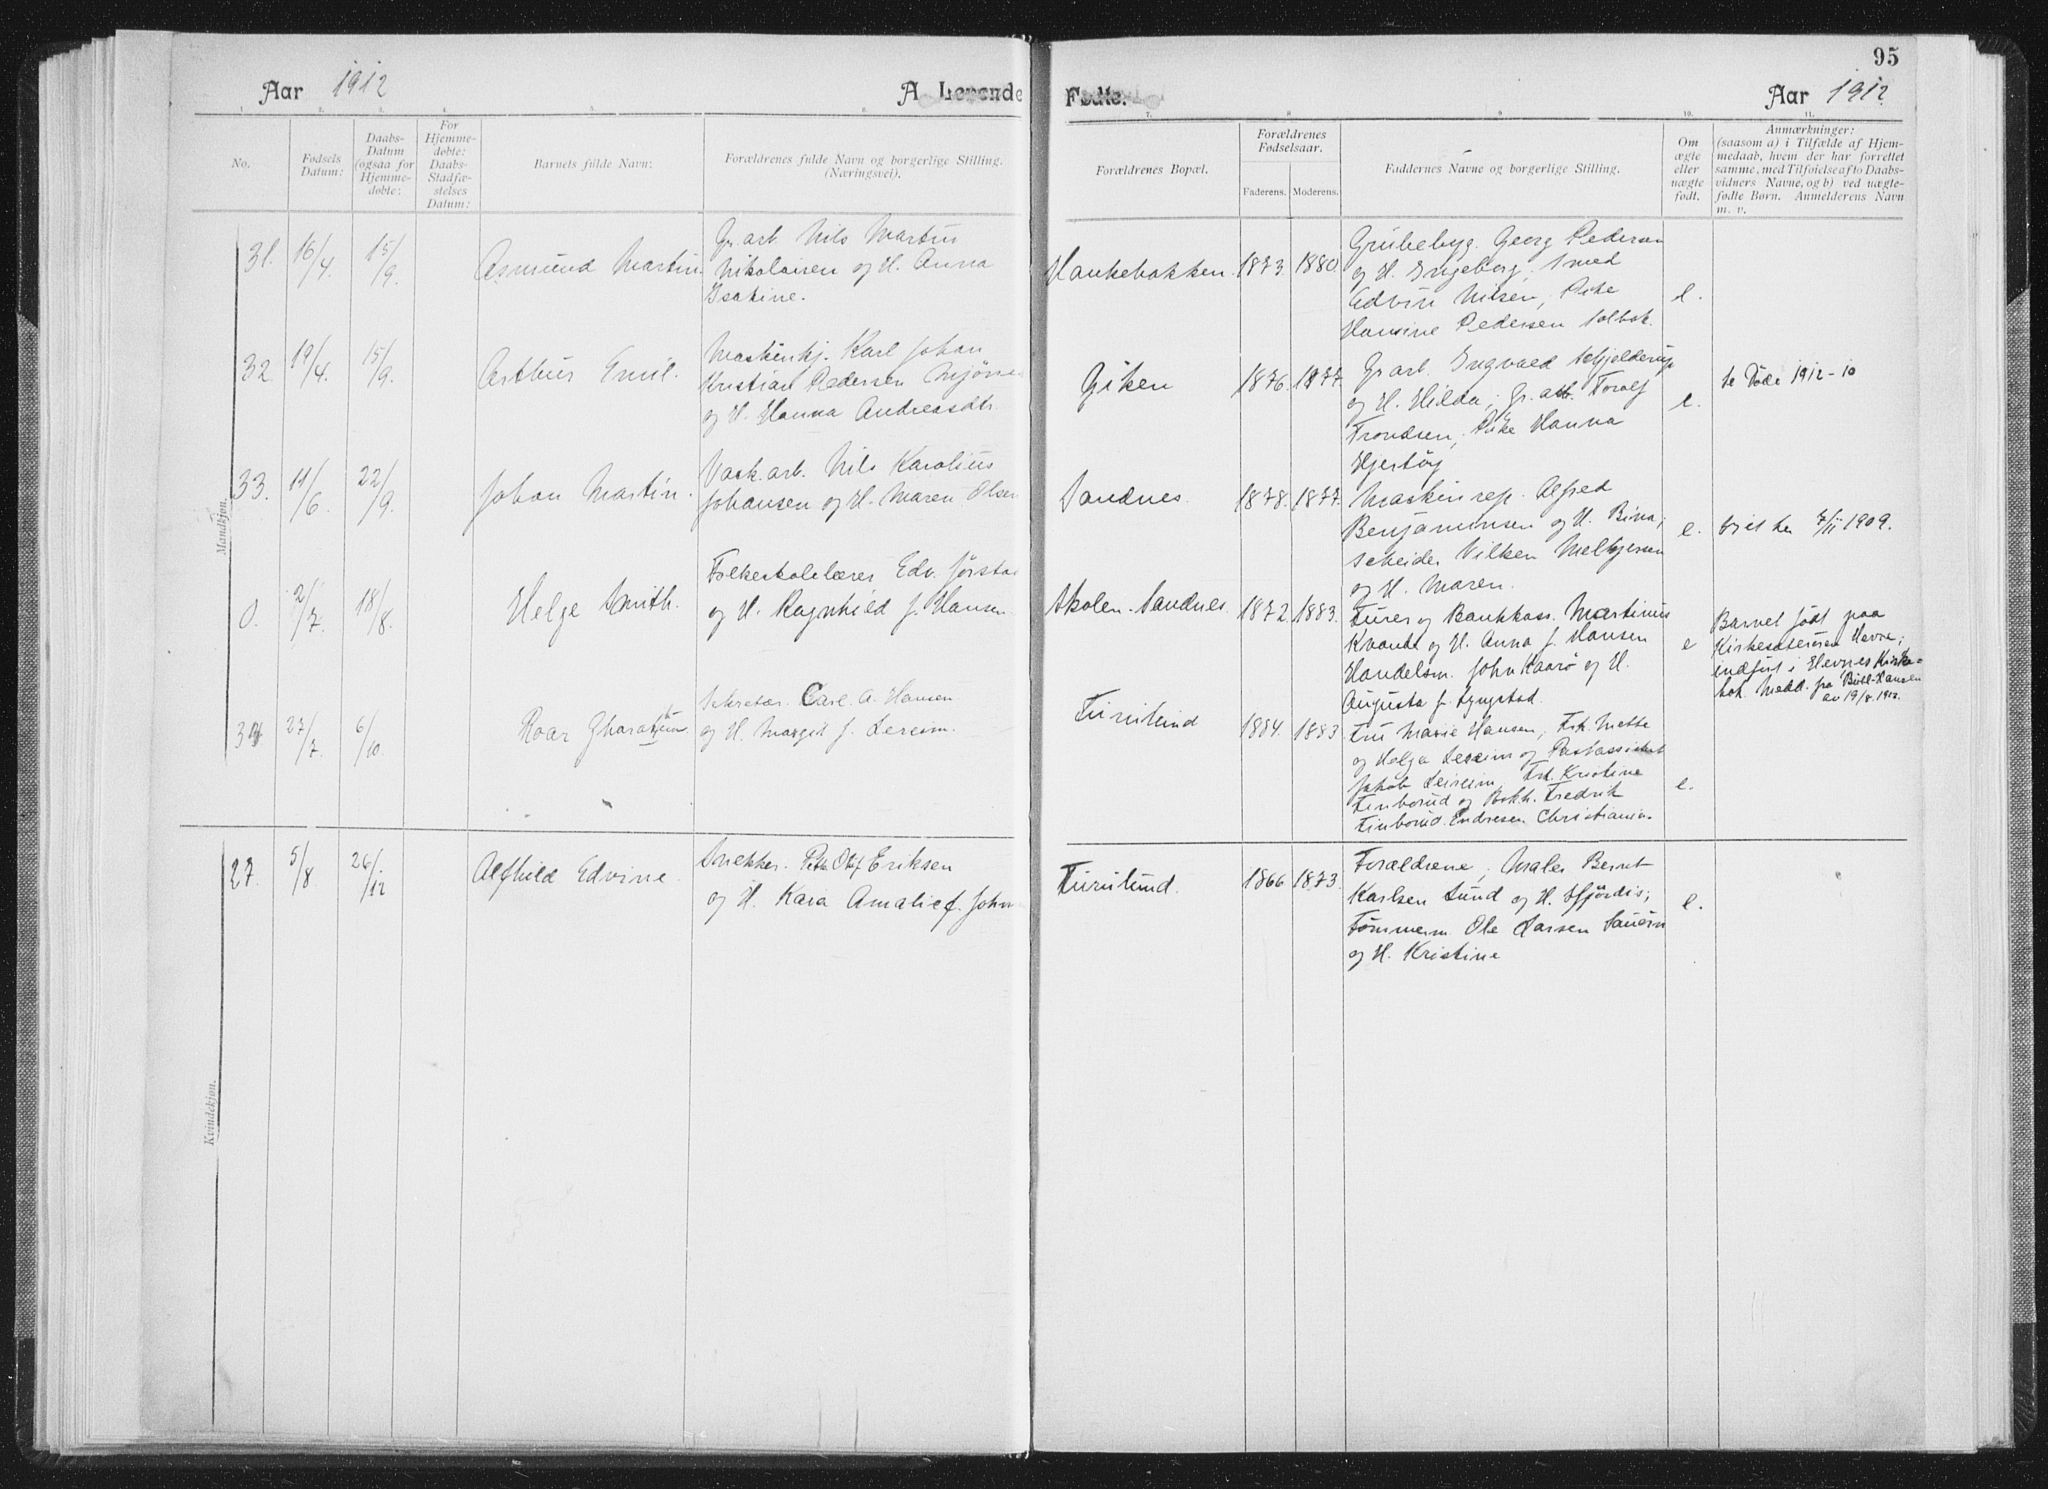 95
Aar 1912
A. Levende Fødte.
Aar 1912
1. 2. 3. 4. 5. 6. 7. 8. 9. 10. 11.
No.
Fødsels Datum:
Daabs-Datum (ogsaa for Hjemme-døbte:
For Hjemme-døbte: Daabs-Stadfæ-stelses Datum:
Barnets fulde Navn:
Forældrenes fulde Navn og borgerlige Stilling. (Næringsvei).
Forældrenes Bopæl.
Forældrenes Fødselsaar.
Faderens. Moderens.
Faddernes Navne og borgerlige Stilling.
Om ægte eller uægte født.
Anmærkninger:
(saasom a) i Tilfælde af Hjem-
medaab, hvem der har forrettet
samme, med Tilføielse af to Daabs-
vidners Navne, og b) ved uægte-
fødte Børn. Anmelderens Navn
m. v.
Mandkjøn.
31. 16/4. 15/9. Asmund Martin.
Gr. arb. Nils Martin
Nikolaisen og H. Anna
Isakine.
Haukebakken. 1873. 1880
Grubebyg. Georg Pedersen
og H. Ingeborg; Smed
Edvin Nilsen, Pike
Hansine Pedersen Solbak.
e.
32 19/4. 15/9. Arthur Emil.
Maskinkj. Karl Johan
Kristian Pedersen Mjøne
og H. Hanna Andreasdtr.
Giken 1876. 1877.
Gr. arb. Ingvald Schjelderup
og H. Hilda; Gr. arb. Toralf
Trondsen; Pike Hanna
Hjertøy
e.
se Døde 1912-10
33. 11/6. 22/9. Johan Martin.
Vask. arb. Nils Karolius
Johansen og H. Maren Olsen
Sandnes. 1878. 1877.
Maskinrep. Alfred
Benjaminsen og H. Bina;
Scheider Vilken Melkjersen
og H. Maren.
e.
viet den 7/11 1909.
0. 2/7. 18/8. Helge Smith.
Folkeskolelærer Edv. Jørstad
og H. Ragnhild f. Hansen
Skolen. Sandnes. 1872. 1883.
Furer og Bankkass. Martinus
Kvande og H. Anna f. Hansen
Handelsm. John Kaarø og H.
Augusta f. Lyngstad.
e
Barnet født paa
Kirkesæterøren Hevne;
indført i Hevnes Kirke-
bok. Medd. fra Bull-Hansen
av 19/8. 1912.
34 27/7. 6/10
Sekretær. Carl. A. Hansen
og H. Margit f. Lereim.
Furulund 1884. 1883
Fru Marie Hansen, Frk. Mette
og Helga Lereim og Postassistent
Jakob Lereim, Frk. Kristine
Finborud og Bokh. Fredrik
Finborud. Endresen Christiania.
e.
Kvindekjøn.
27. 5/8 26/12 Alfhild Edvine.
Snekker. Peter Olaf Eriksen
og H. Kaia Amalie f. John
Furulund. 1866 1873.
Forældrene; Maler Bernt
Karlsen Lund og H. Hjørdis;
Tømmerm. Ole Larsen
og H. Kristine
e.